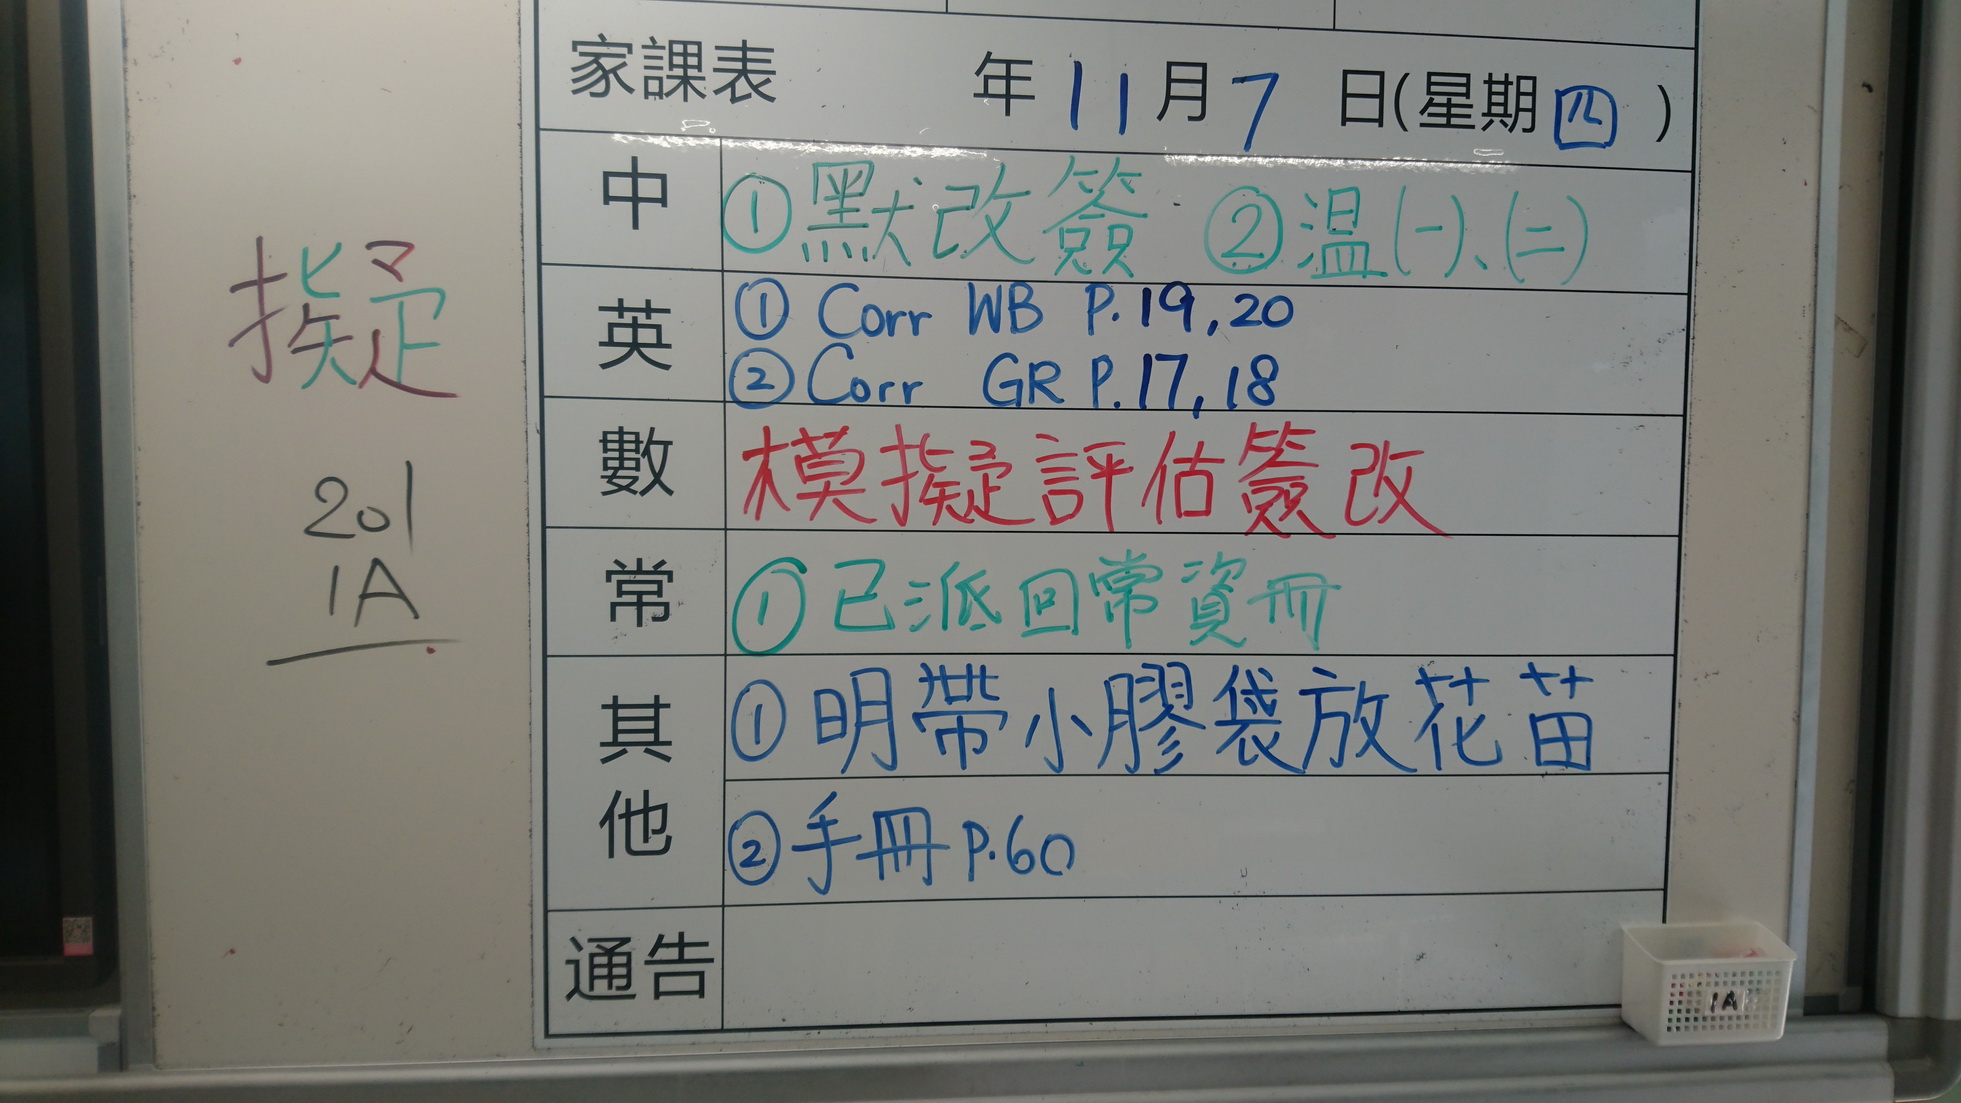 家課表 年11月7日(星期四)
中 ①默改簽 ②温(一)、(二)
英 ① Corr WB P.19,20
② Corr GR P.17,18
數 模擬評估簽改
常 ①已派回常資冊
其他 ①明帶小膠袋放花苗
②手冊P.60
通告
擬
201
1A
1A